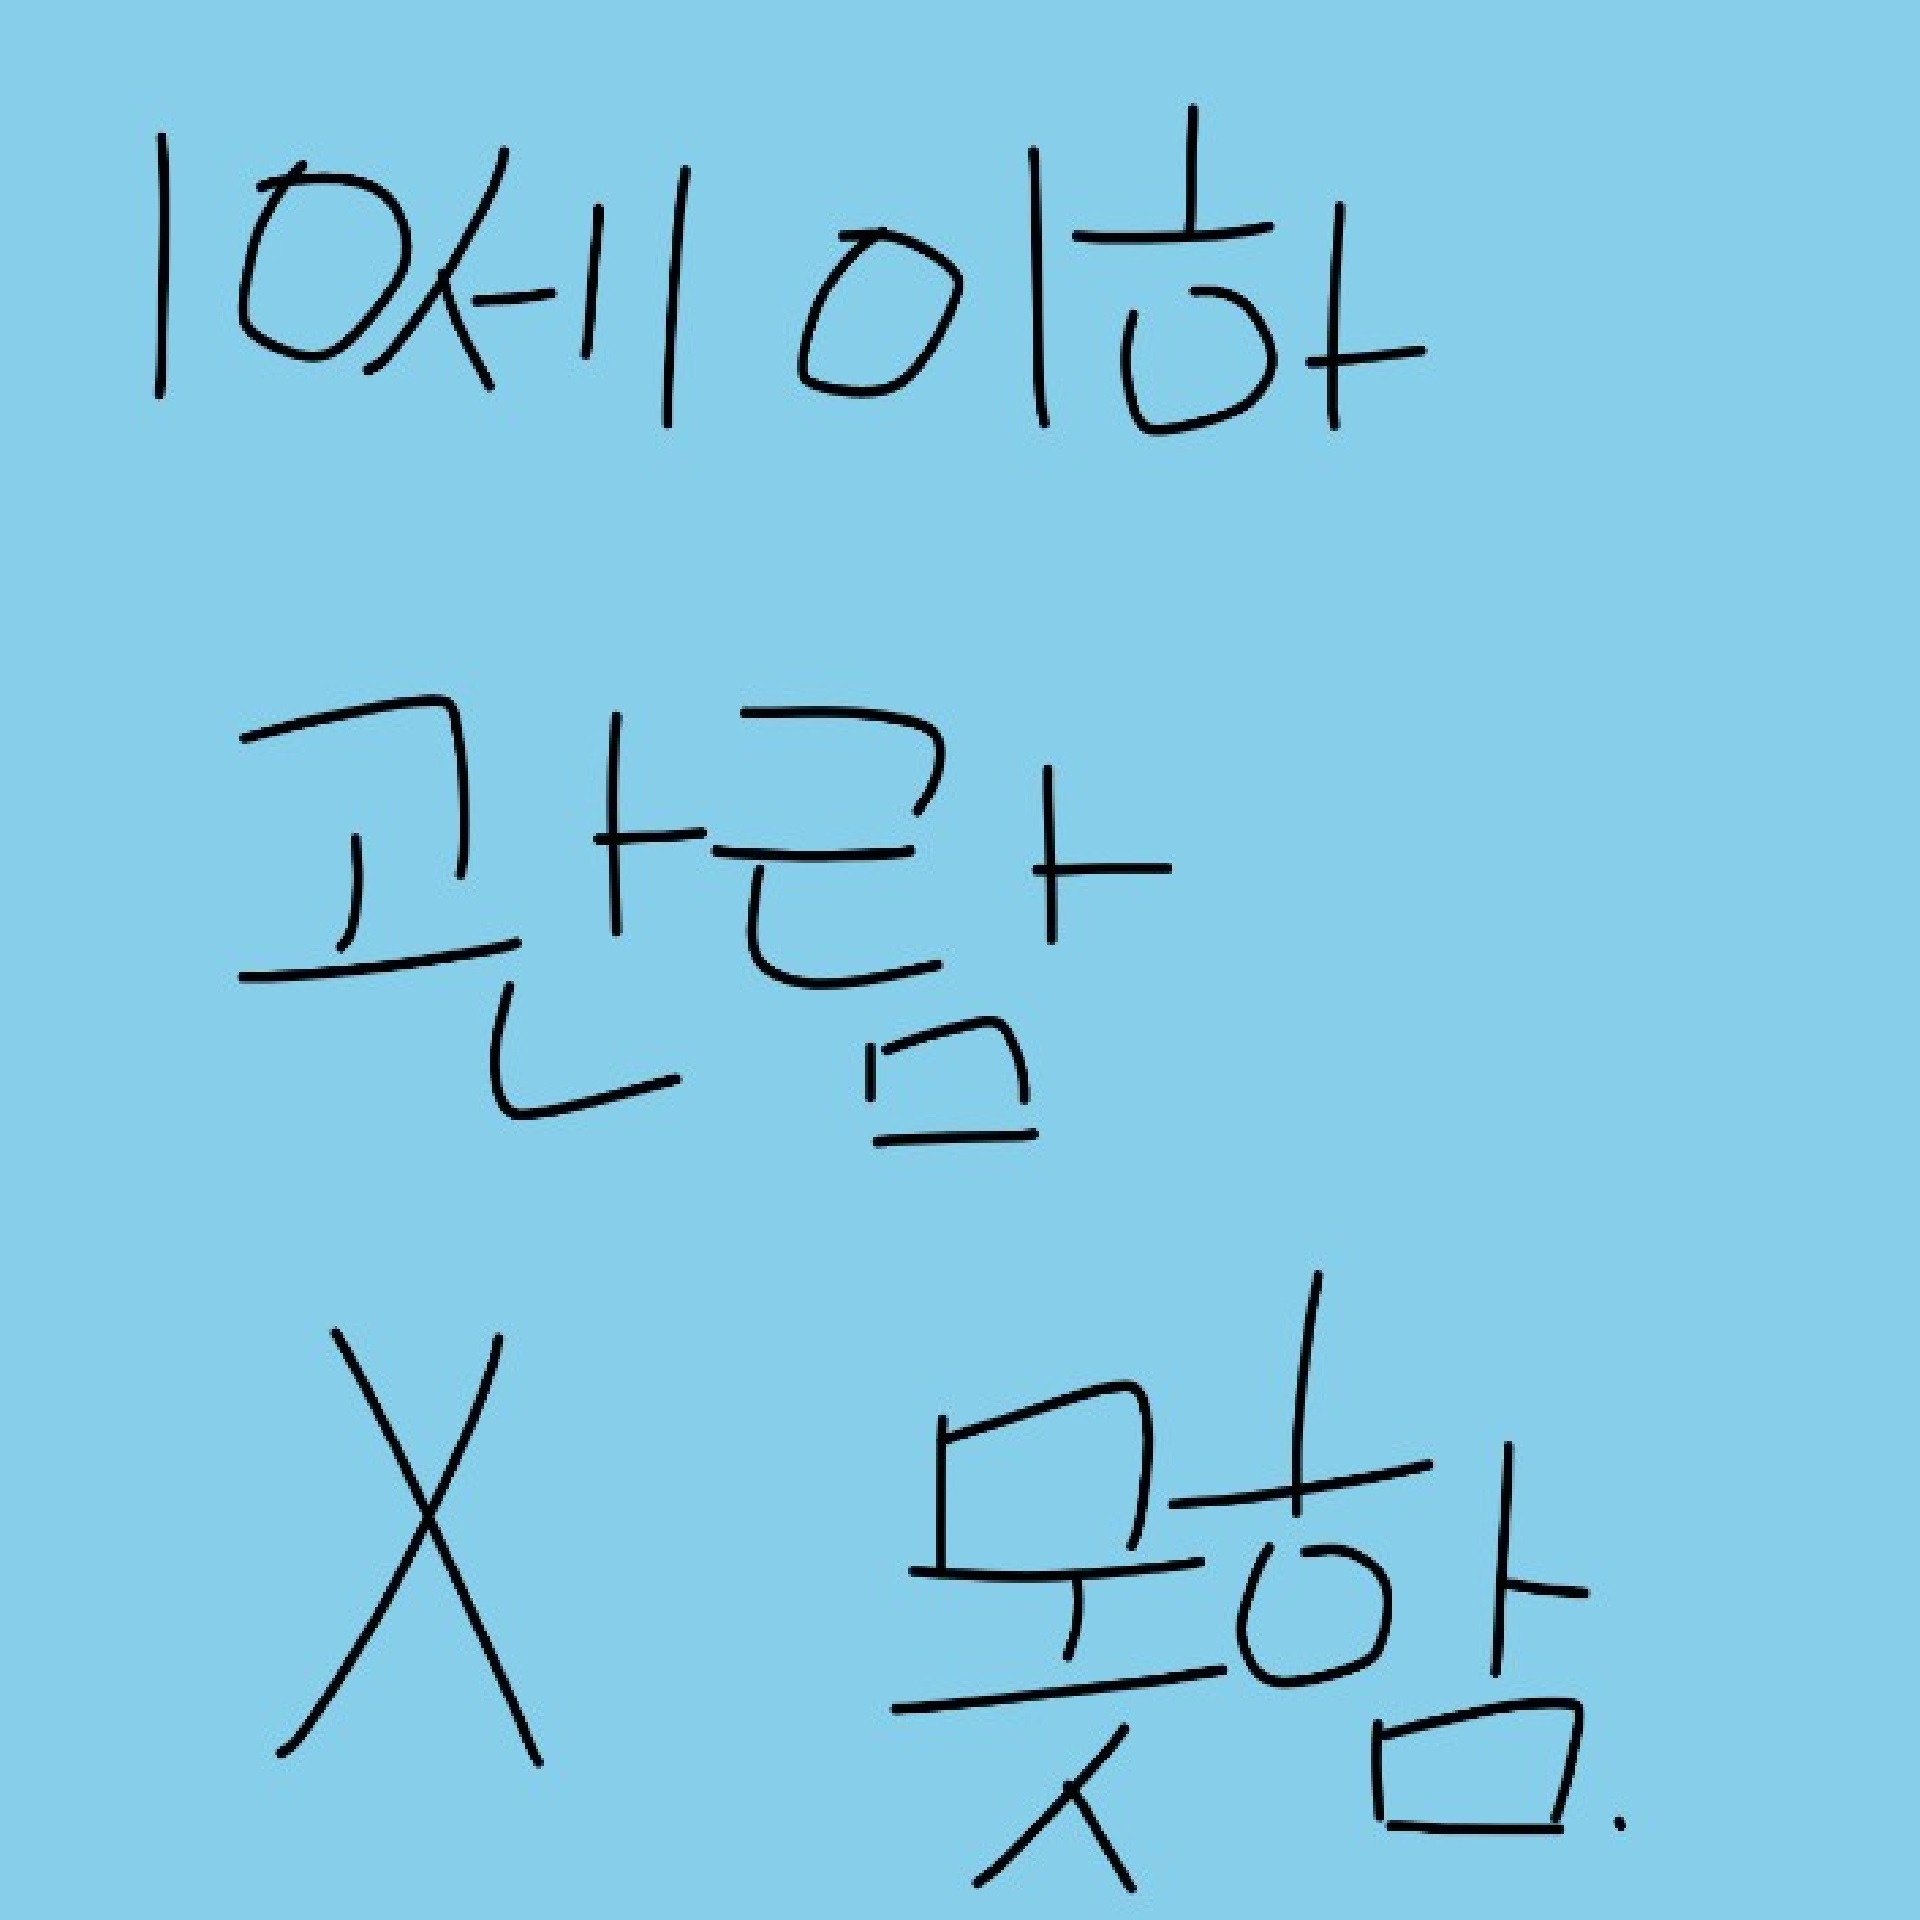 10세 이하
관람
X 못함.